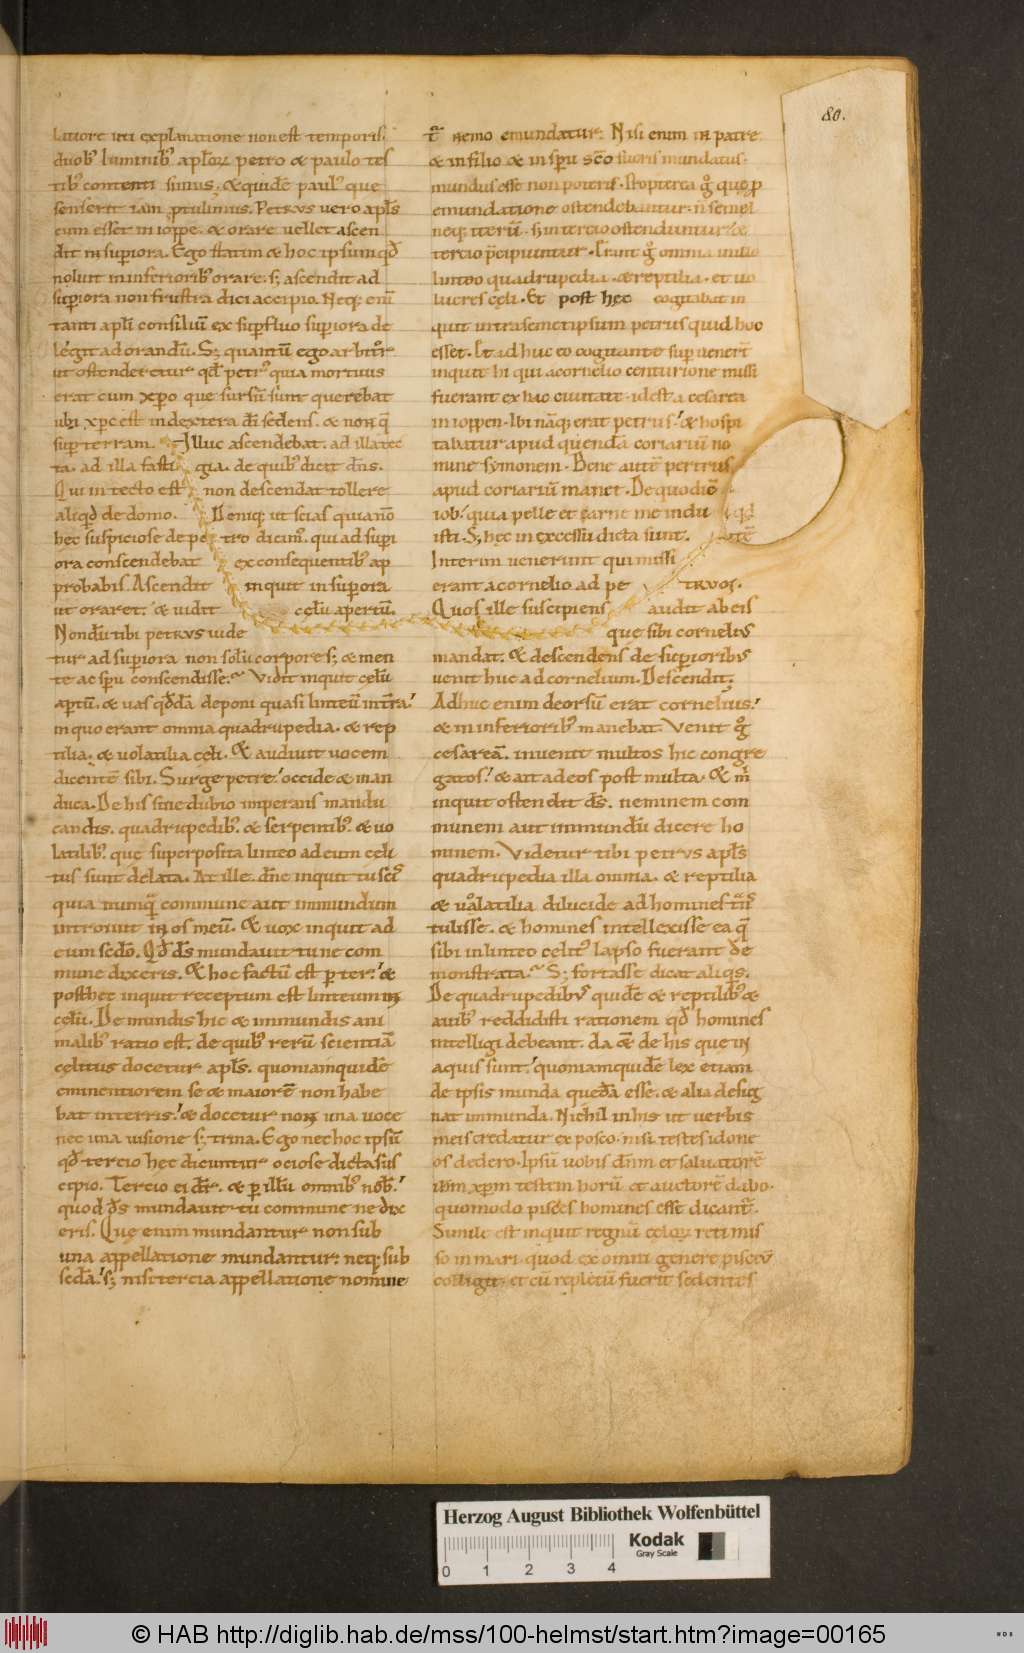 80.
latiore uti explanatione non est temporis.
duob; luminib; apl'oꝝ petro & paulo tes
tib; contenti simus. & quidē paul' que
senserit iam ꝓtulimus. Petrus vero apl's
cum esset in ioppe. & orare uellet ascen
dit in supiora. Ego statim & hoc ipsum qđ
noluit in inferiorib; orare. s; ascendit ad
supiora non frustra dici accipio. Neq; eni
tanti apl'i consiliū ex supfluo supiora de
legit ad orandū. S; quantū ego arbitror
ut ostenderetur qđ petr' quia mortuus
erat cum xp̄o que sursū sunt querebat
ubi xp̄c est in dextera dī sedens. & non q̄
sup terram. Illuc ascendebat. ad illa tec
ta. ad illa fasti gia. de quib; dicit dn̄s.
Qui in tecto est non descendat tollere
aliqd de domo. Deniq; ut scias quia nō
hec suspiciose de pe tro dicim'. qui ad supi
ora conscendebat ex consequentib; ap
probabis. Ascendit inquit in supiora
ut oraret. & vidit celū apertū.
Nondū tibi petrus uide
tur ad supiora non solū corpore s; & men
te ac spū conscendisse. Vidit inquit celū
aptū. & uas qđdā deponi quasi linteū in t̄ra.
in quo erant omnia quadrupedia. & rep
tilia. & uolatilia celi. & audiuit uocem
dicentē sibi. Surge petre occide & man
duca. De his sine dubio imperans mandu
candis. quadrupedib; & serpentib; & uo
latilib; que superposita linteo ad eum celi
tus sunt delata. At ille. dn̄e inquit tu scis
quia numquā commune aut immundum
introiuit in os meū. & uox inquit ad
eum scdo. Qđ ds mundauit tu ne com
mune dixeris. & hoc factū est p ter. &
posthec inquit receptum est linteum in
celū. De mundis hic & immundis ani
malib; ratio est. de quib; rerū scientiā
celitus docetur apl's. quoniam quidē
eminentiorem se & maiorē non habe
bat in terris. & docetur non una uoce
nec una uisione s; trina. Ego nec hoc ipsū
qđ tercio hec dicuntur ociose dicta sus
cipio. Tercio ei dr. & p illū omnib; nob.
quod ds mundauit tu commune ne dix
eris. Que enim mundantur non sub
una appellatione mundantur neq; sub
scda. s; nisi tercia appellatione nomine
t nemo emundatur. Nisi enim in patre
& in filio & in spū sco fueris mundatus.
mundus esse non poteris. Propterea g que p
emundatione ostendebantur. n semel
neq; iterū. s; in tercio ostenduntur. &
tercio p̄cipiuntur. Erant g omnia in illo
linteo quadrupedia. & reptilia. et uo
lucres celi. Et post hec cogitabat in
quit intra semetipsum petrus quid hoc
esset. Et adhuc eo cogitante supuenerū
inquit hi qui a cornelio centurione missi
fuerant ex hac ciuitate. id est a cesarea
in ioppen. Ibi nāq; erat petrus. & hospi
tabatur apud quendā coriariū no
mine symonem. Bene autē petrus
apud coriariū manet. De quo dic
iob. quia pelle et carne me indu
isti. S; hec in excessu dicta sunt.
Interim venerunt qui missi
erant a cornelio ad pe truos.
Quos ille suscipiens audit ab eis
que sibi cornelius
mandat. & descendens de supiorib;
uenit huc ad cornelium. Descendit.
Adhuc enim deorsū erat cornelius.
& in inferiorib; manebat. Venit g
cesareā. inuenit multos hic congre
gatos. & ait ad eos post multa. & m
inquit ostendit ds. neminem com
munem aut immundū dicere ho
minem. Videtur tibi petrus apl's
quadrupedia illa omnia. & reptilia
& uolatilia dilucide ad homines t̄ns
tulisse. & homines intellexisse ea q̄
sibi in linteo celit' lapso fuerant de
monstrata. S; fortasse dicat aliqs.
De quadrupedib; quidē & reptilib; &
auib; reddidisti rationem qđ homines
intelligi debeant. da & de his que in
aquis sunt. quoniam quidē lex etiam
de ipsis munda quedā esse. & alia desig
nat immunda. Nichil in his ut uerbis
meis credatur exposco. nisi testes idone
os dedero. Ipsū uobis dn̄m et saluatorē
ihm xpm testem horū et auctorē dabo.
quomodo pisces homines esse dicant.
Simile est inquit regnū celoꝝ reti mis
so in mari. quod ex omni genere pisciū
colligit. et cū repletū fuerit sedentes
Herzog August Bibliothek Wolfenbüttel
Kodak
Gray Scale
0 1 2 3 4
© HAB http://diglib.hab.de/mss/100-helmst/start.htm?image=00165